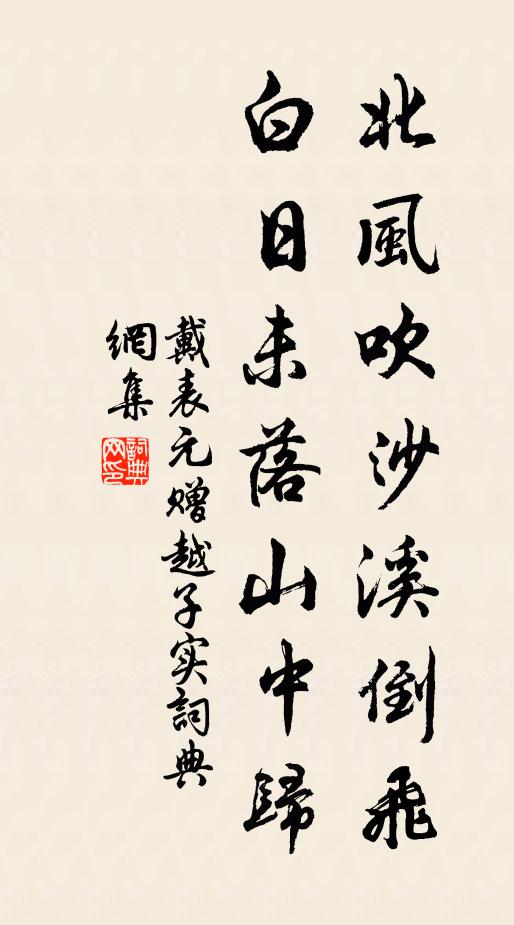 北風吹沙溪倒飛
白日未落山中歸
戴表元赠越子实詞典
網集
詞典網印